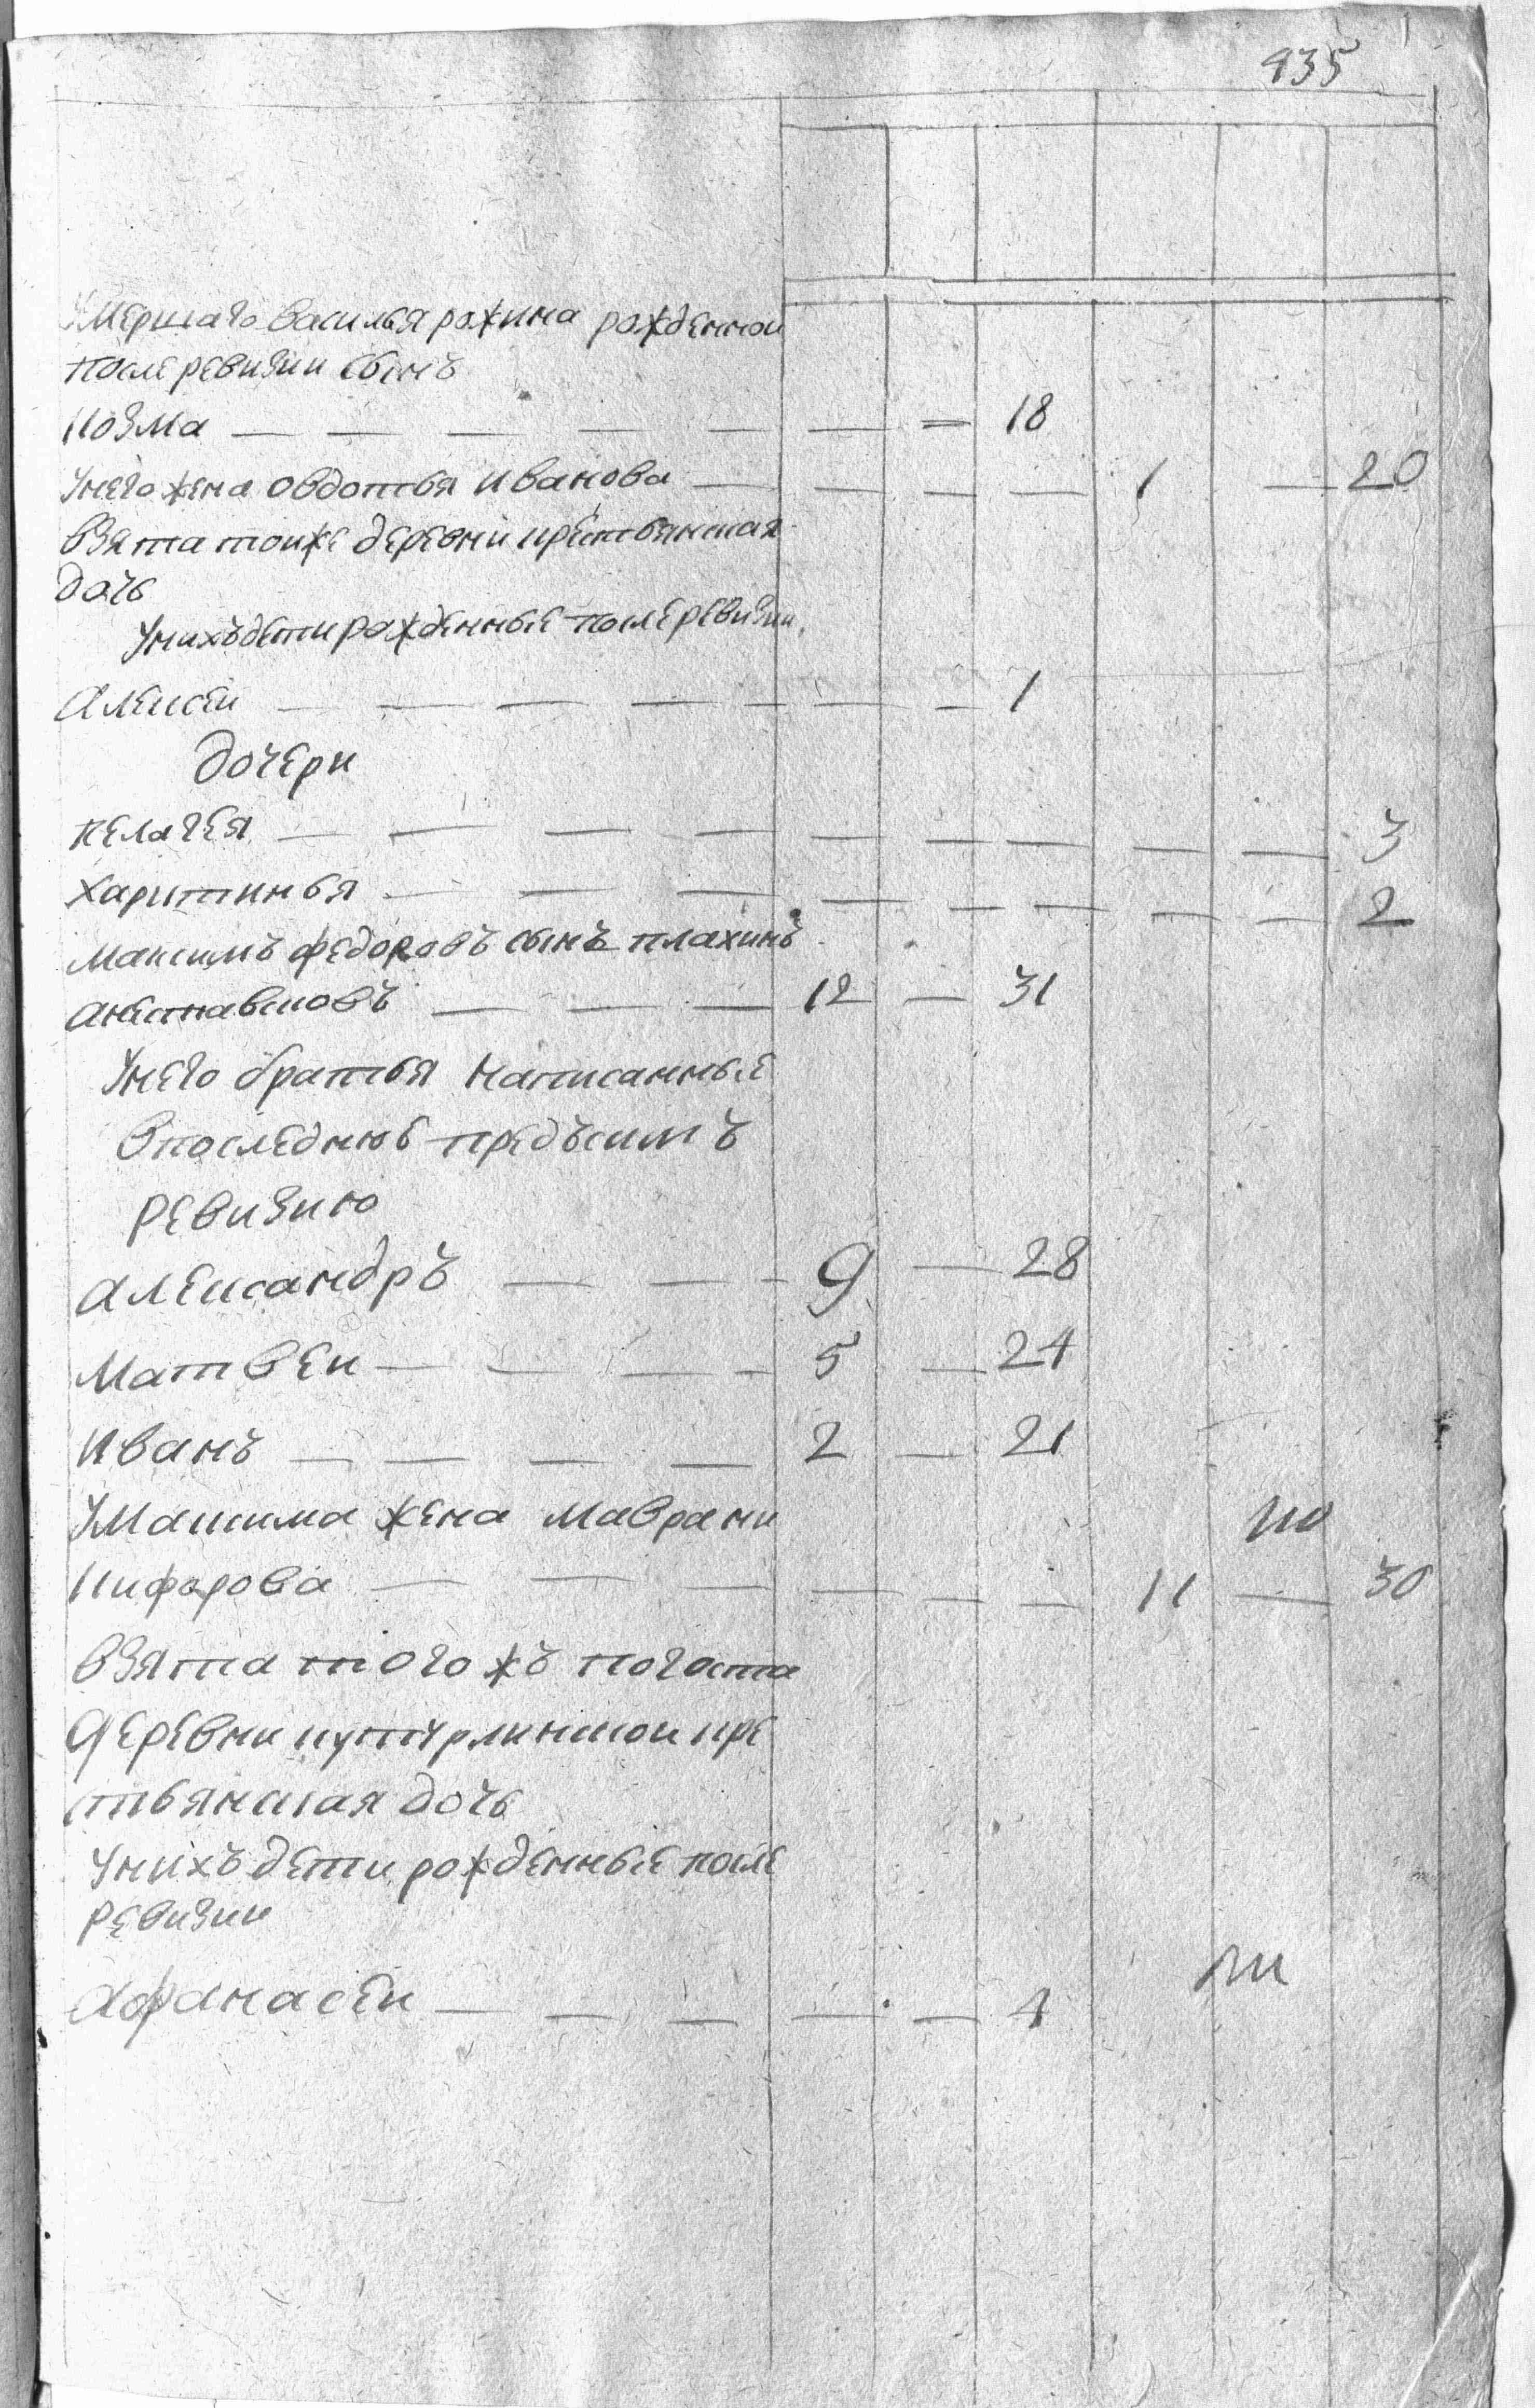 435
Умершаго василья рожина рожденной
после ревизии сынъ
козма — — — — — — = 18
Унего жена овдотья иванова — — — — 1 — 20
взята тойже деревни крестьянская
дочь
Унихъ дети рожденные после ревизии
алексей — — — — — — — 1
дочери
пелагея — — — — — — — — — 3
харитинья — — — — — — — — 2
максимъ федоровъ сынъ плахинъ
— — — 12 — 31
Унего братья написанные
впоследнюю предъсимъ
ревизию
александръ — — — 9 — 28
матвей — — — — 5 — 24
иванъ — — — — 2 — 21
Умаксима жена мавра ни
кифорова — — — — — — 11 — 30
взята того жъ погоста
деревни кутурлинской кре
стьянская дочь
Унихъ дети рожденные после
ревизии
афанасей — — — — — 4